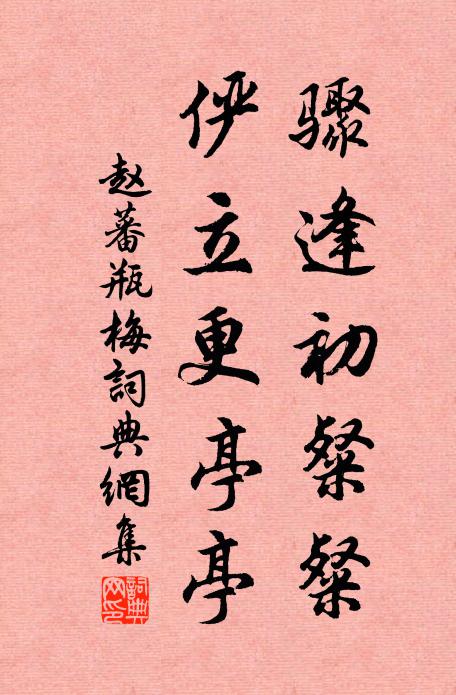 驟逢初粲粲
俜立更亭亭
赵蕃瓶梅詞典網集
詞典网印